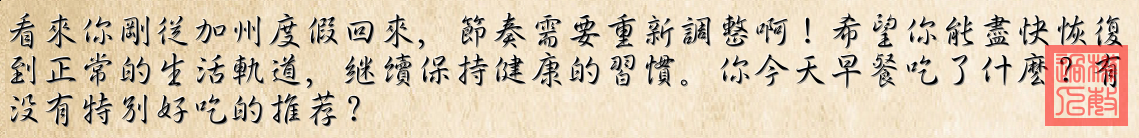 看來你剛從加州度假回來，節奏需要重新調整啊！希望你能盡快恢復
到正常的生活軌道，继續保持健康的習慣。你今天早餐吃了什麼？有
没有特別好吃的推荐？